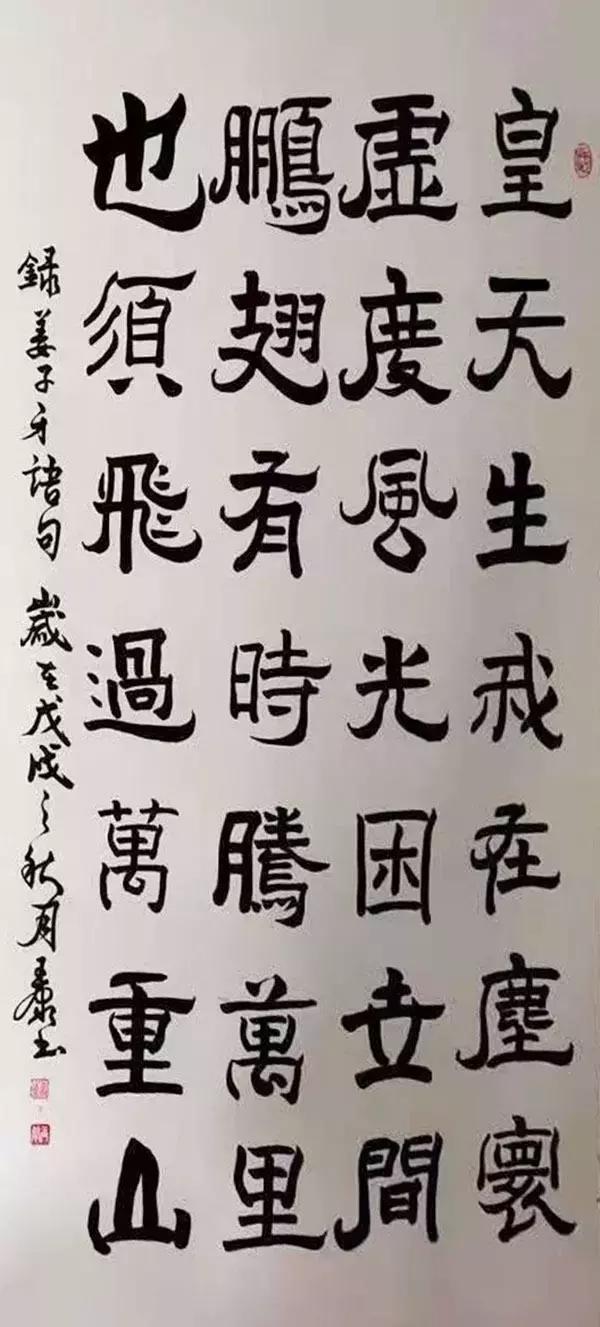 皇天生我在塵寰
虛度風光困世間
鵬翅有時騰萬里
也須飛過萬重山
錄姜子牙語句 歲在戊戌之秋月泰書